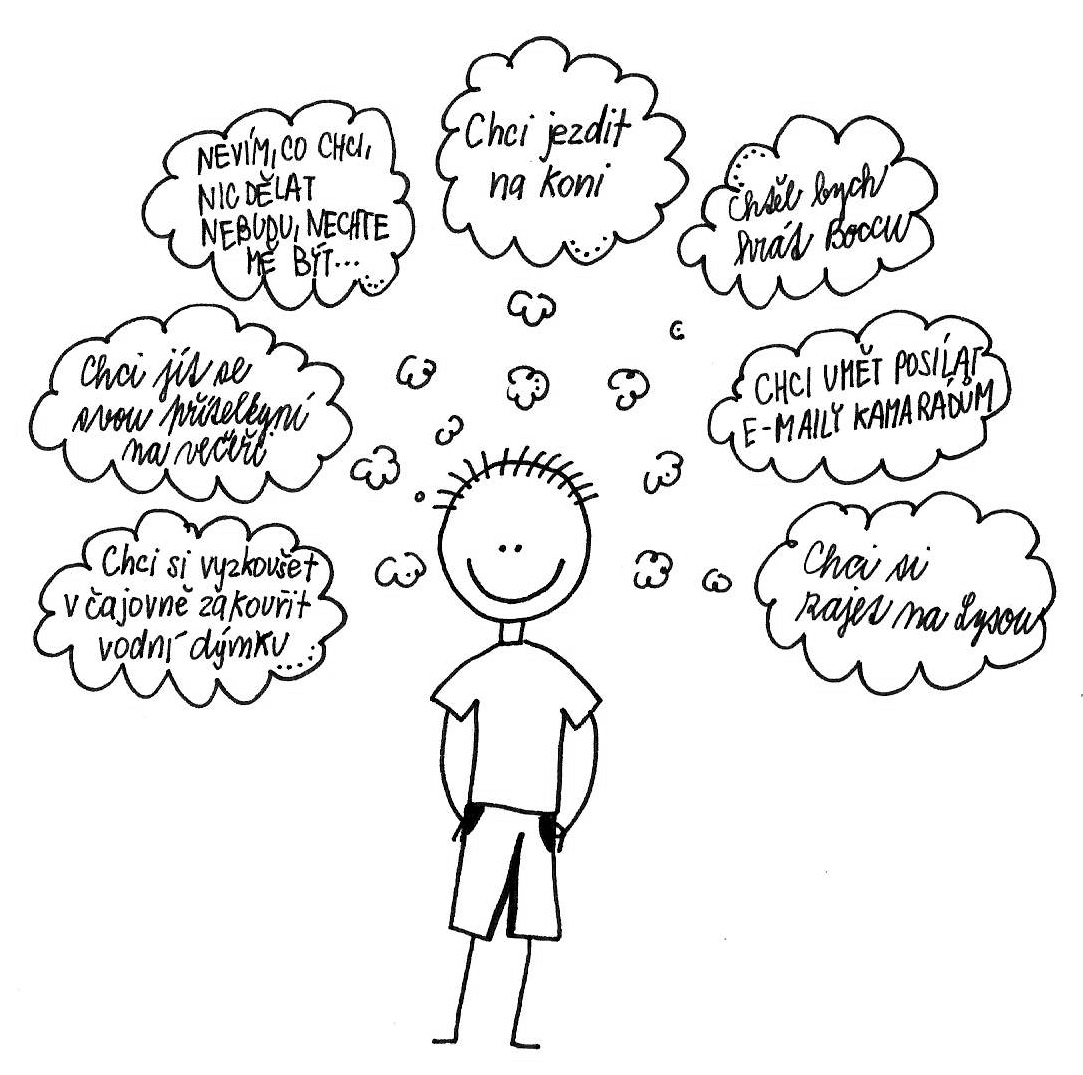 NEVÍM, CO CHCI,
NIC DĚLAT
NEBUDU, NECHTE
MĚ BÝT...
Chci jezdit
na koni
Chtěl bych
hrát Boccu
Chci jít se
svou přítelkyní
na večeři
CHCI UMĚT POSÍLAT
E-MAILY KAMARÁDŮM
Chci si vyzkoušet
v čajovně zakouřit
vodní dýmku
Chci si
zajet na Lysou